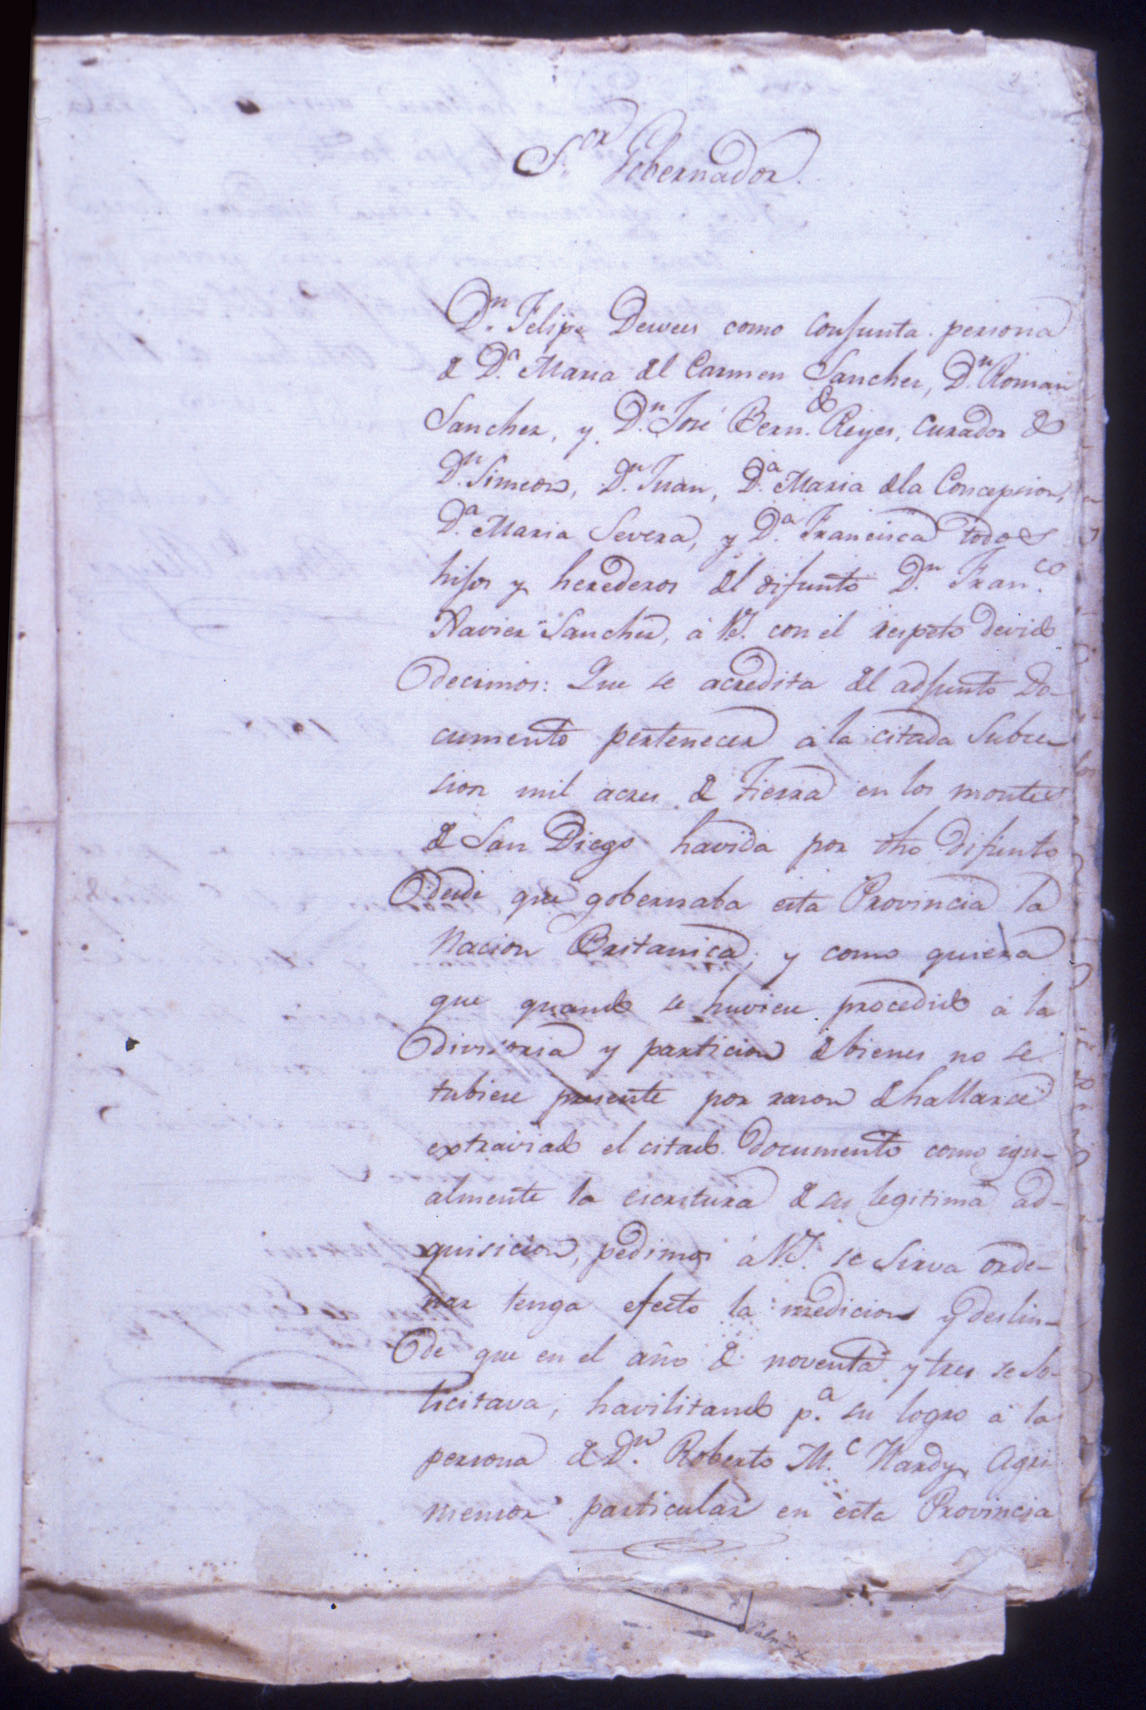 S.or Gobernador.
D.n Felipe Dewees como conjunta persona
de D.a Maria del Carmen Sanchez, D.n Roman
Sanchez, y D.n José Bern.do Reyes, curador de
D.n Simeon, D.n Juan, D.a Maria de la Concepcion,
D.a Maria Severa, y D.a Francisca todos
hijos y herederos del difunto D.n Fran.co
Xavier Sanchez, á V.S. con el respeto devido
decimos: Que se acredita del adjunto Do-
cumento pertenecer á la citada Subce-
sion mil acres de Tierra en los montes
de San Diego havida por dho difunto
desde que gobernaba esta Provincia la
Nacion Britanica; y como quiera
que quando se huviese procedido á la
divisoria y particion de bienes no se
tubiese presente por razon de hallarce
extraviado el citado documento como igu-
almente la escritura de su legitima ad-
quisicion, pedimos á V.S. se sirva orde-
nar tenga efecto la medicion y deslin-
de que en el año de noventa y tres se so-
licitava, havilitando p.a su logro á la
persona de D.n Roberto M.c Hardy Agri
mensor particular en esta Provincia